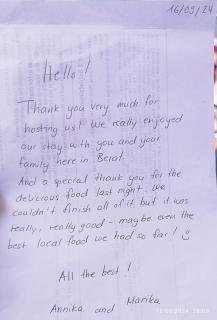 16/09/24
Hello!
Thank you very much for
hosting us! We really enjoyed
our stay with you and your
family here in Berat.
And a special thank you for the
delicious food last night. We
couldn't finish all of it but it was
really, really good - maybe even the
best local food we had so far! :)
All the best!
Annika and Marika